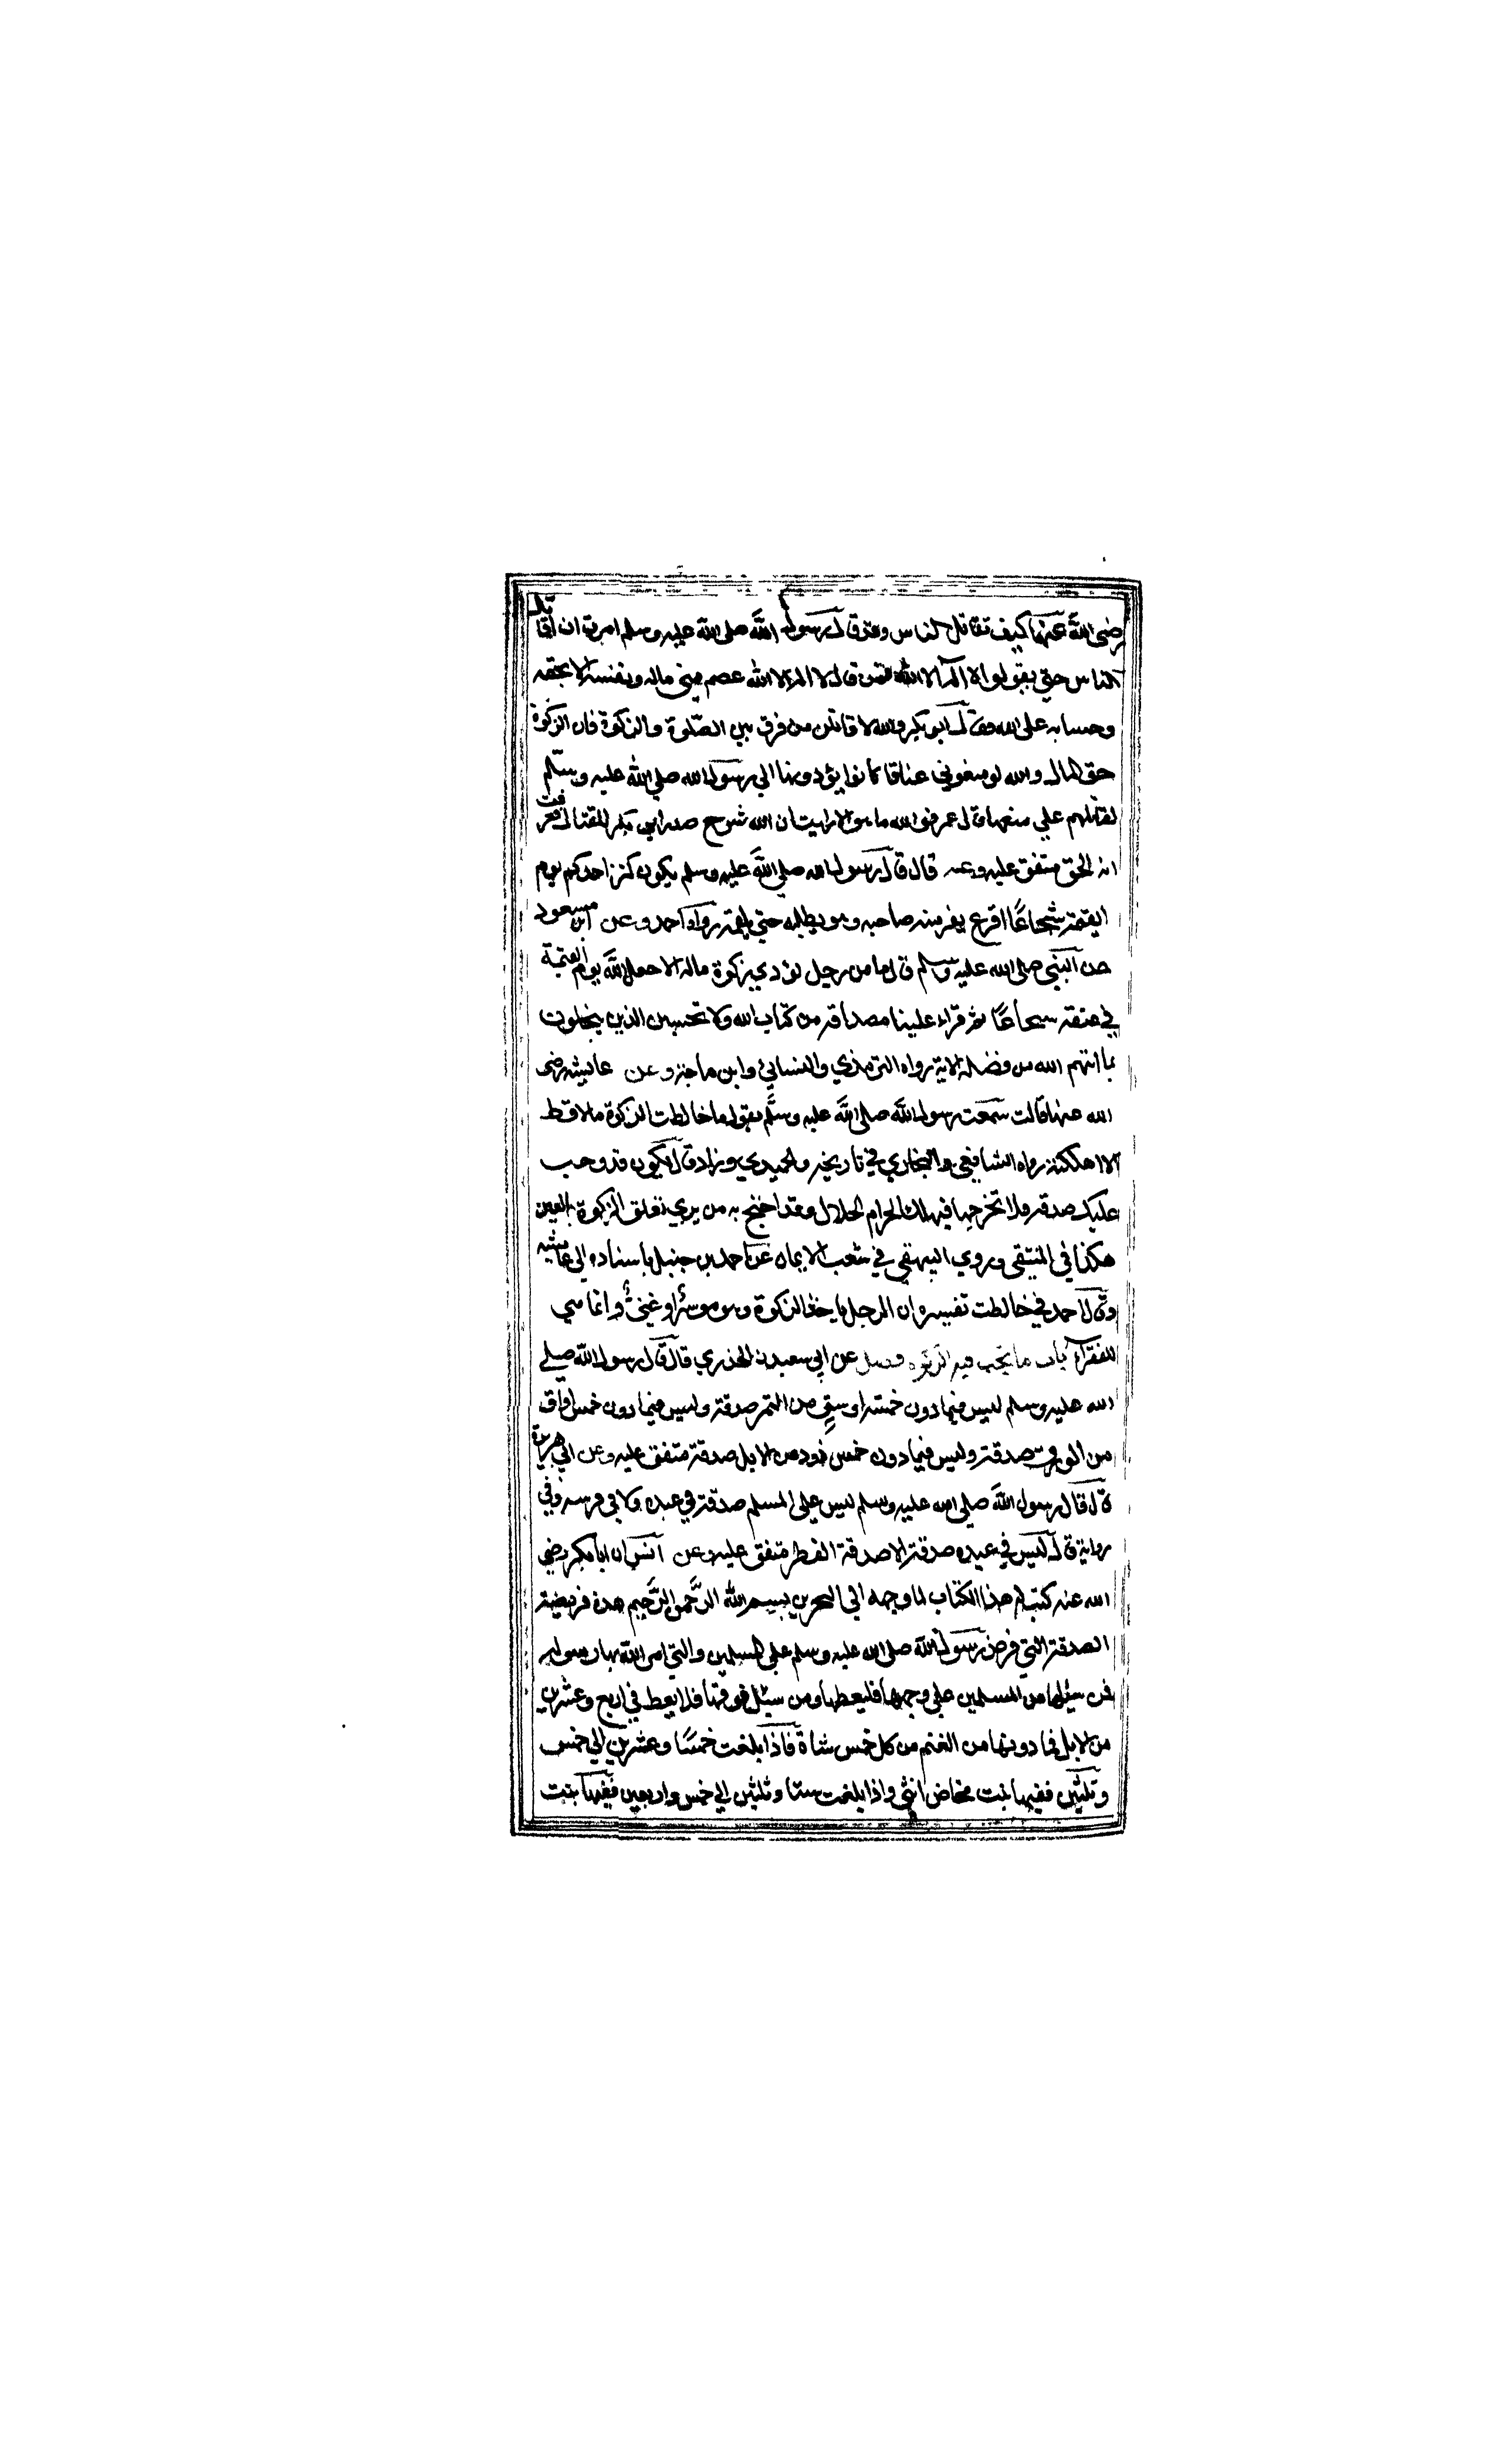 رضى الله عنهما كيف تقاتل الناس وقد قال رسول الله صلى الله عليه وسلم امرت ان اقاتل
الناس حتي يقولوا لا اله الا الله فمن قال لا اله الا الله عصم مني ماله ونفسه الا بحقه
وحسابه على الله فقال ابو بكر والله لاقاتلن من فرق بين الصلوة والزكوة فان الزكوة
حق المال والله لو منعوني عناقا كانوا يؤدونها الي رسول الله صلي الله عليه وسلم
لقاتلتهم علي منعها قال عمر فوالله ما هو الا رايت ان الله شرح صدر ابي بكر للقتال فعرفت
انه الحق متفق عليه وعنه قال قال رسول الله صلي الله عليه وسلم يكون كنز احدكم يوم
القيمة شجاعًا اقرع يفر منه صاحبه وهو يطلبه حتي يلقمه رواه احمد وعن ابن مسعود
عن النبي صلى الله عليه وسلم قال ما من رجل لا يؤدي زكوة ماله الا جعل الله يوم القيمة
في عنقه شجاعًا ثم قراء علينا مصداقه من كتاب الله ولا تحسبن الذين يبخلون
بما اتهم الله من فضله الاية رواه الترمذي والنسائي وابن ماجة وعن عايشه رضى
الله عنها قالت سمعت رسول الله صلى الله عليه وسلم يقول ما خالطت الزكوة مالا قط
الا اهلكته رواه الشافعي والبخاري في تاريخه والحميدي وزاد قال يكون قد وجب
عليك صدقة فلا تخرجها فيهلك الحرام الحلال وقد احتج به من يري تعلق الزكوة بالعين
هكذا في المنتقى وروي البيهقي في شعب الايمان عن احمد بن حنبل باسناده الي عايشه
وقال احمد في خالطت تفسيره ان الرجل ياخذ الزكوة وهو موسر او غني وانما هي
للفقراء باب ما يجب فيه الزكوه فصل عن ابي سعيد ن الخدري قال قال رسول الله صلي
الله عليه وسلم ليس فيما دون خمسة اوسق من التمر صدقة وليس فيما دون خمس اواق
من الورق صدقة وليس فيما دون خمس ذود من الابل صدقة متفق عليه وعن ابي هريرة
قال قال رسول الله صلي الله عليه وسلم ليس على المسلم صدقة في عبده ولا في فرسه وفي
رواية قال ليس في عبده صدقة الا صدقة الفطر متفق عليه وعن انس ان ابا بكر رضي
الله عنه كتب له هذا الكتاب لما وجهه الي البحرين بسم الله الرحمن الرحيم هذه فريضة
الصدقة التي فرض رسول الله صلى الله عليه وسلم علي المسلمين والتي امر الله بها رسوله
فمن سئلها من المسلمين علي وجهها فليعطها ومن سئل فوقها فلا يعط في اربع وعشرين
من الابل فما دونها من الغنم من كل خمس شاة فاذا بلغت خمسًا وعشرين الي خمس
وثلثين ففيها بنت مخاض انثي واذا بلغت ستا وثلثين الي خمس واربعين ففيها بنت